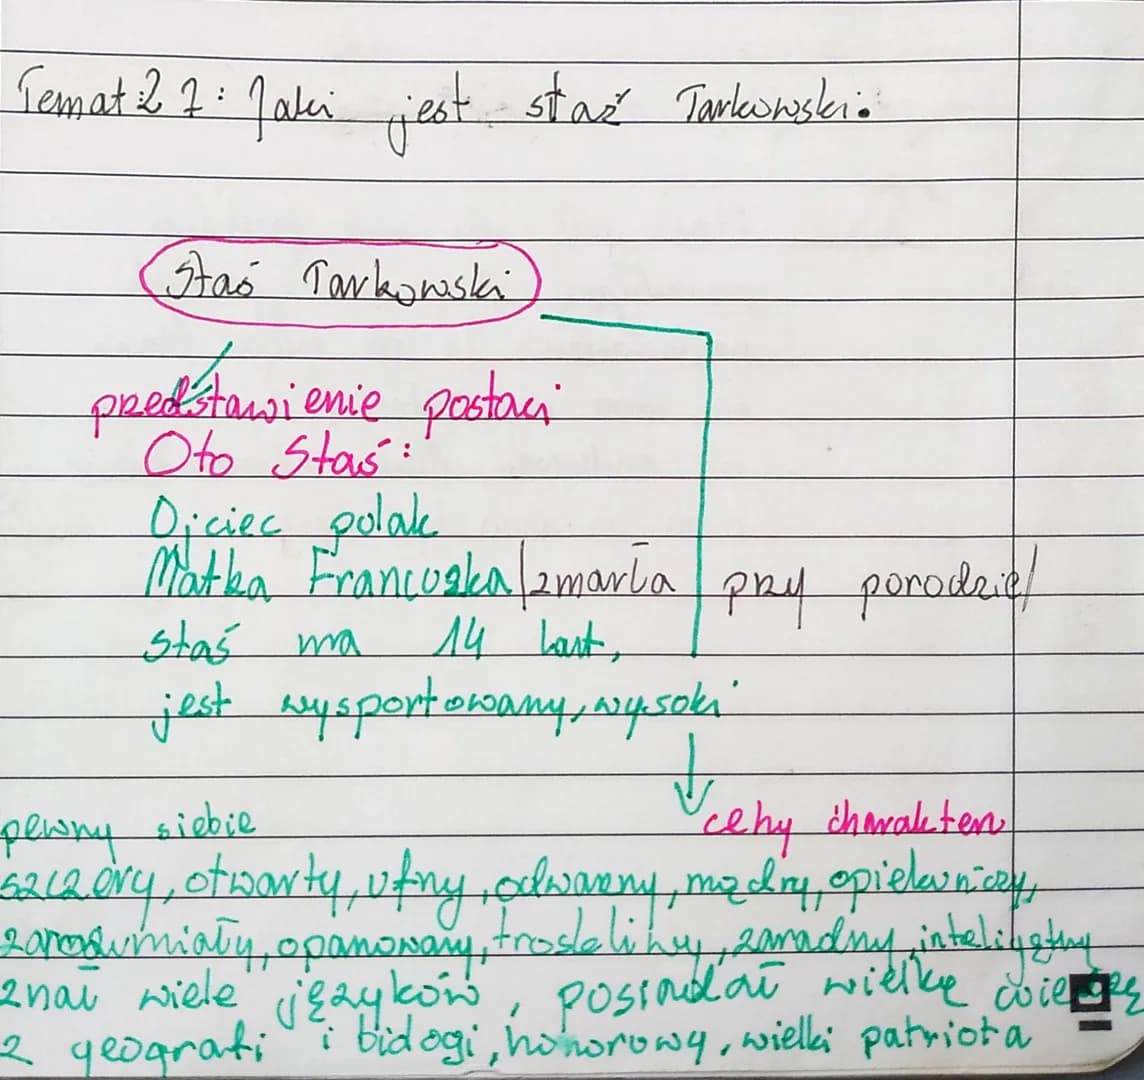 Temat 27: Jaki jest staź Tarkowski.
Staś Tarkowski
predstawienie postaci
Oto Staś:
Ojciec polak
Matka Francuska /zmarła przy porodzie/
staś ma 14 lat,
jest wysportowany, wysoki
pewny siebie
cehy charakteru
szczery, otwarty, ufny, odważny, mądry, opiekuńczy,
zarozumiały, opanowany, troskliwy, zaradny, inteligętny
znał wiele języków, posiadał wielkę wiedzę
z geografi i biologi, honorowy, wielki patriota